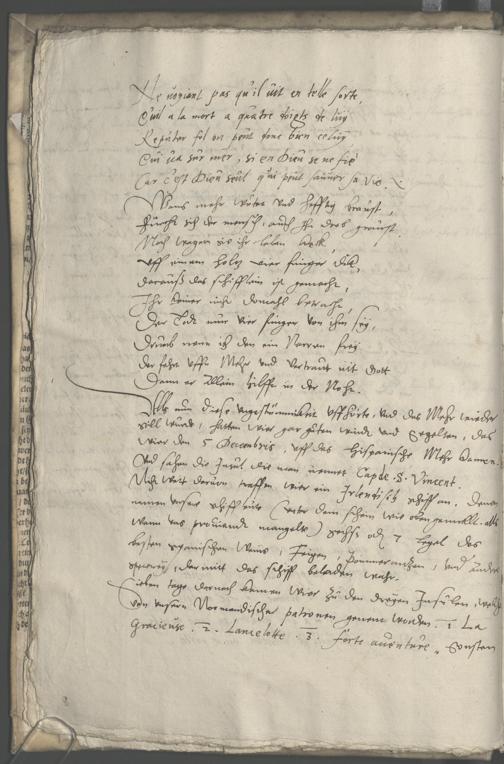 Ne voyant pas qu'il vit en telle sorte,
Qu'il a la mort a quatre doigts de luy
Reputer fol on peut donc bien celuy
Qui va sur mer, si en Dieu ne se fie
Car c'est Dieu seul qui peut sauver sa vie.
Wans mehr wütet und hefftig braust,
Förcht sich der mensch, auch ihn drob graust
Noch wagen sie ihr leben
Uff einem holtz vier finger dick,
Darauß das schifflein ist gemacht,
Ihr keiner nicht
Der Todt nur vier finger von ihm sey,
Drumb nenn ich den ein Narren frey
Der fehrt uffs Mehr und vertraut nit Gott
Dann er allein hilfft in der Noht.
Als nun diese ungestümmikeit uffhörte, und das Mehr wieder
still wurde, hatten wier gar guten windt und segelten, das
wier den 5 Decembris, uff das Hispanische Mehr kamen
Und sahen die Insul die man nennet Cap de S. Vincent.
Nich weit darvon traffen wier ein Irlendisch schiff an. Deme
namen unsere schiffleute (unter dem schein wie oben gemellt, als
wann uns proviandt mangelte) sechs od. 7 legel des
besten spanischen Weins, Feigen, Pommerantzen, und andere
, darmit das schiff beladen wahr.
Sieben tage darnach kamen wier zu den dreyen Insulen, welche
von unsern Normandischen patronen genent worden. 1. La
Gracieuse. 2. Lancelotte. 3. Forte aventure, sonsten